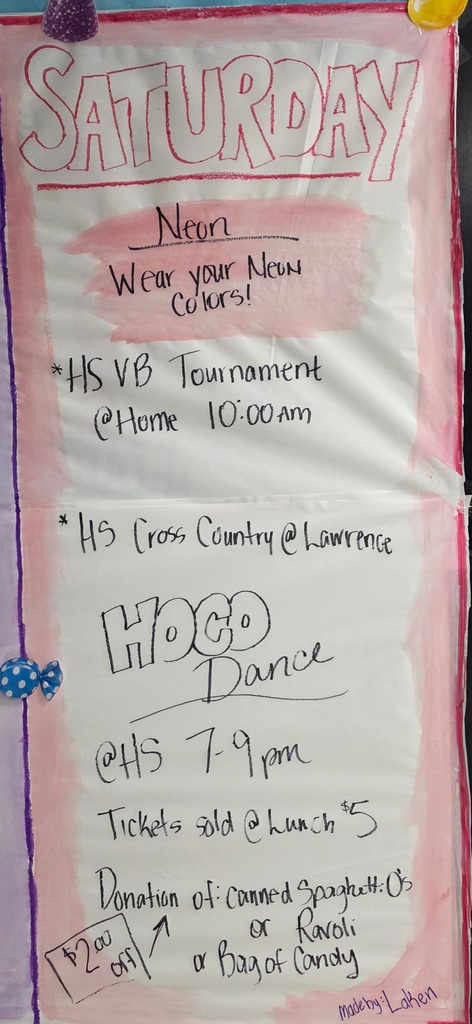 SATURDAY
Neon
Wear your Neon
Colors!
*HS VB Tournament
@Home 10:00am
* HS Cross Country @ Lawrence
HOCO
Dance
@HS 7-9pm
Tickets sold @ Lunch $5
Donation of: Canned Spaghetti O's
or Ravoli
or Bag of Candy
$2.00
off
made by: Laken